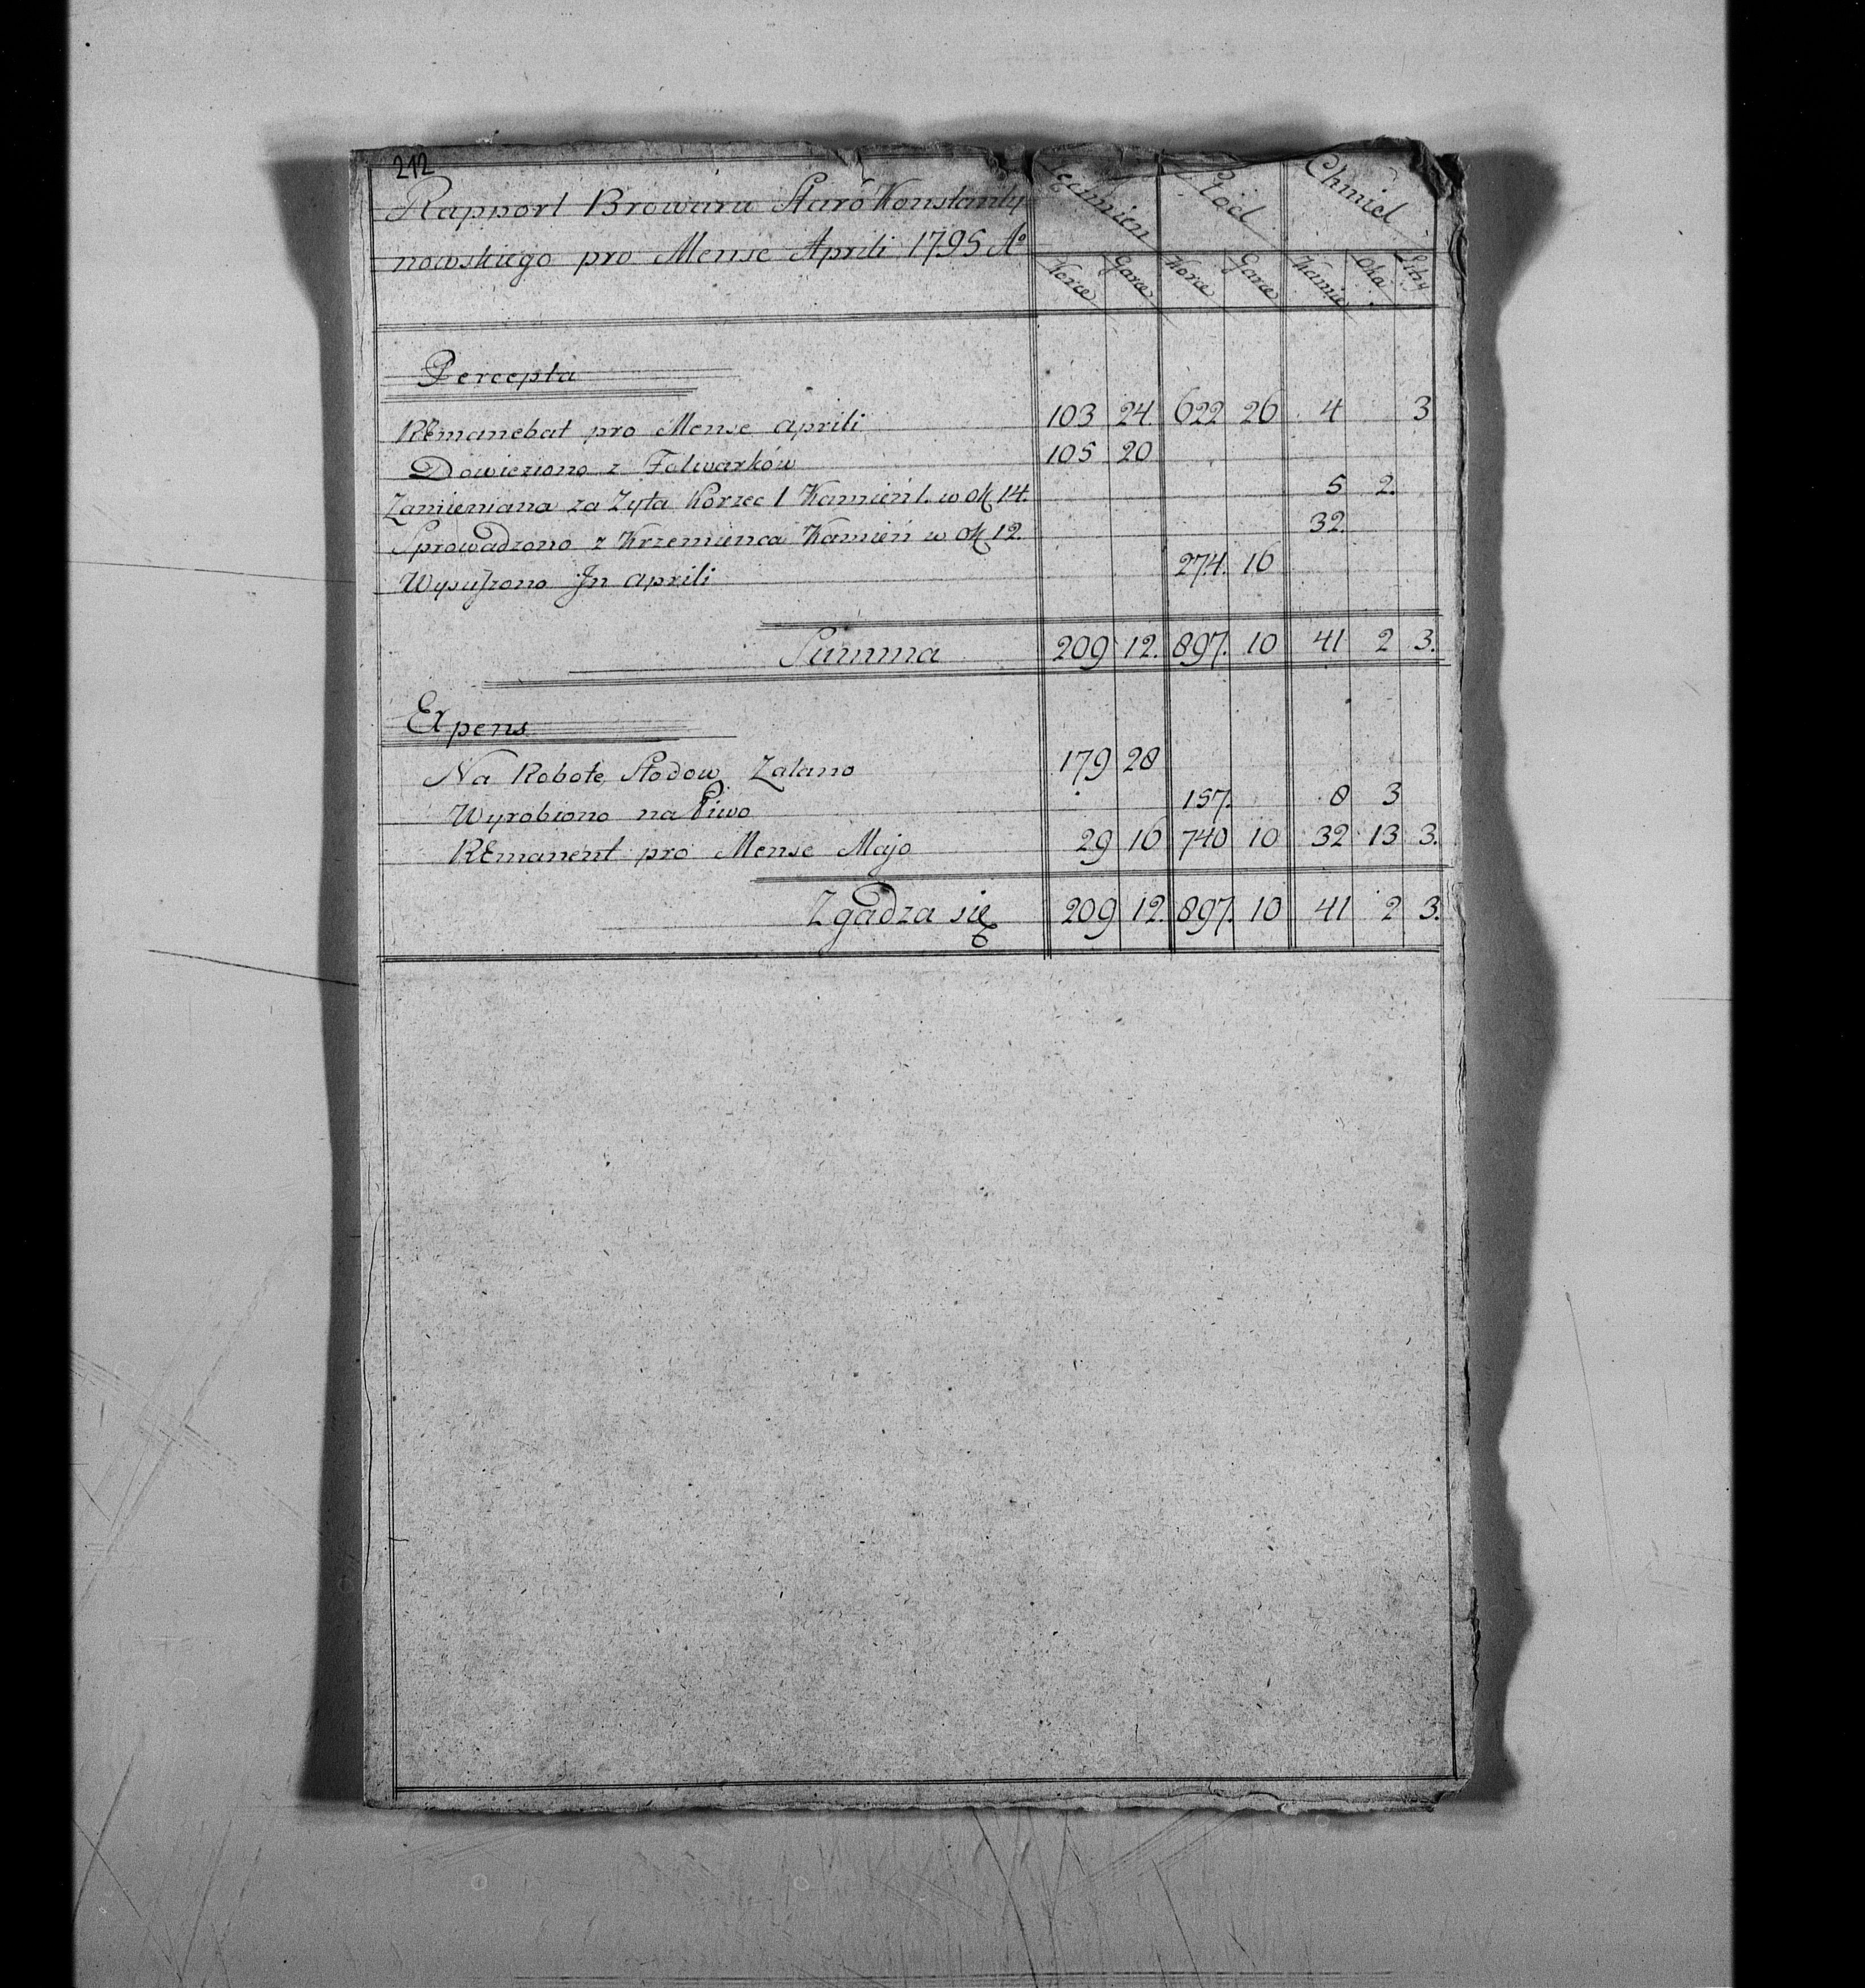 212
Rapport Browaru Staro Konstanty Jęczmień Słód Chmiel
nowskiego pro Mense Aprili 1795 Aº
Korce Garce Korce Garce Kamie Oka Litry
Percepta
REmanebat pro Mense Aprili 103 24. 622 26 4 3
Dowieziono z Folwarków 105 20
Zamieniana za Zyta Korzec 1 Kamień 1. w ok 14. 5 2.
Sprowadzono z Krzemienca Kamień w ok 12. 32.
Wysuszono Jn Aprili 274. 16
Summa 209 12. 897. 10 41 2 3.
Expens
Na Robotę Słodow Zalano 179 28
Wyrobiono na Piwo 157. 8 3
REmanent pro Mense Majo 29 16 740 10 32 13 3.
Zgadza się 209 12. 897. 10 41 2 3.